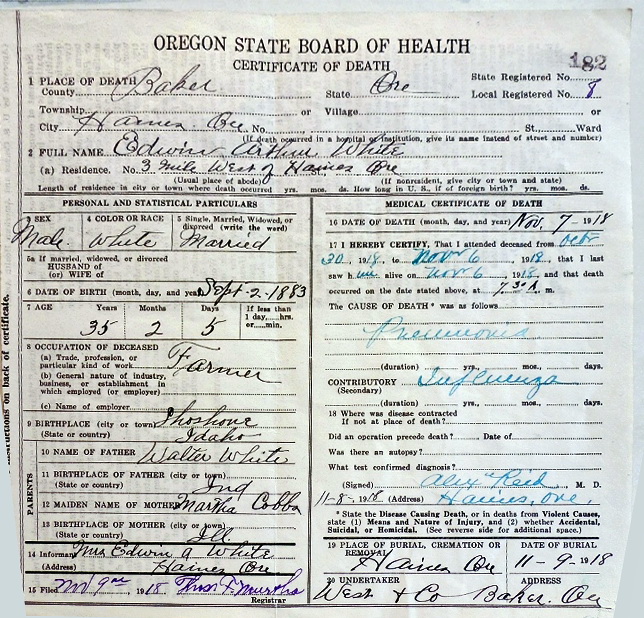 OREGON STATE BOARD OF HEALTH
CERTIFICATE OF DEATH
182
1 PLACE OF DEATH
County Baker State Ore State Registered No.
Local Registered No. 8
Township or Village or
City Haines Ore No. St. Ward
(If death occurred in a hospital or institution, give its name instead of street and number)
2 FULL NAME Edwin Arthur White
(a) Residence. No. 3 mile West of Haines Ore
(Usual place of abode) (If nonresident, give city or town and state)
Length of residence in city or town where death occurred yrs. mos. ds. How long in U. S., if of foreign birth? yrs. mos. ds.
PERSONAL AND STATISTICAL PARTICULARS
3 SEX 4 COLOR OR RACE 5 Single, Married, Widowed, or divorced (write the word)
Male White Married
5a If married, widowed, or divorced
HUSBAND of
(or) WIFE of
6 DATE OF BIRTH (month, day, and year) Sept-2-1883
7 AGE Years Months Days If less than
1 day,....hrs.
or......min.
35 2 5
8 OCCUPATION OF DECEASED
(a) Trade, profession, or
particular kind of work Farmer
(b) General nature of industry,
business, or establishment in
which employed (or employer)
(c) Name of employer
9 BIRTHPLACE (city or town) Shoshone
(State or country) Idaho
PARENTS
10 NAME OF FATHER Walter White
11 BIRTHPLACE OF FATHER (city or town)
(State or country) Ind
12 MAIDEN NAME OF MOTHER Martha Cobbs
13 BIRTHPLACE OF MOTHER (city or town)
(State or country) Ill.
14 Informant Mrs Edwin A White
(Address) Haines Ore
15 Filed Nov 9 1918 Thos F. Murtha
Registrar
MEDICAL CERTIFICATE OF DEATH
16 DATE OF DEATH (month, day, and year) Nov. 7 - 1918
17 I HEREBY CERTIFY, That I attended deceased from Octbr
30, 1918, to Novr 6, 1918, that I last
saw him alive on Novr 6, 1918 and that death
occurred on the date stated above, at 7.30 A. m.
The CAUSE OF DEATH * was as follows
Pneumonia
(duration) yrs., mos., days.
CONTRIBUTORY Influenza
(Secondary)
(duration) yrs., mos., days.
18 Where was disease contracted
If not at place of death?
Did an operation precede death? Date of
Was there an autopsy?
What test confirmed diagnosis?
(Signed) Alex Reid M. D.
11-8-1918 (Address) Haines, Ore.
* State the Disease Causing Death, or in deaths from Violent Causes,
state (1) Means and Nature of Injury, and (2) whether Accidental,
Suicidal, or Homicidal. (See reverse side for additional space.)
19 PLACE OF BURIAL, CREMATION OR REMOVAL DATE OF BURIAL
Haines Ore 11-9-1918
20 UNDERTAKER ADDRESS
West & Co Baker. Ore
instructions on back of certificate.